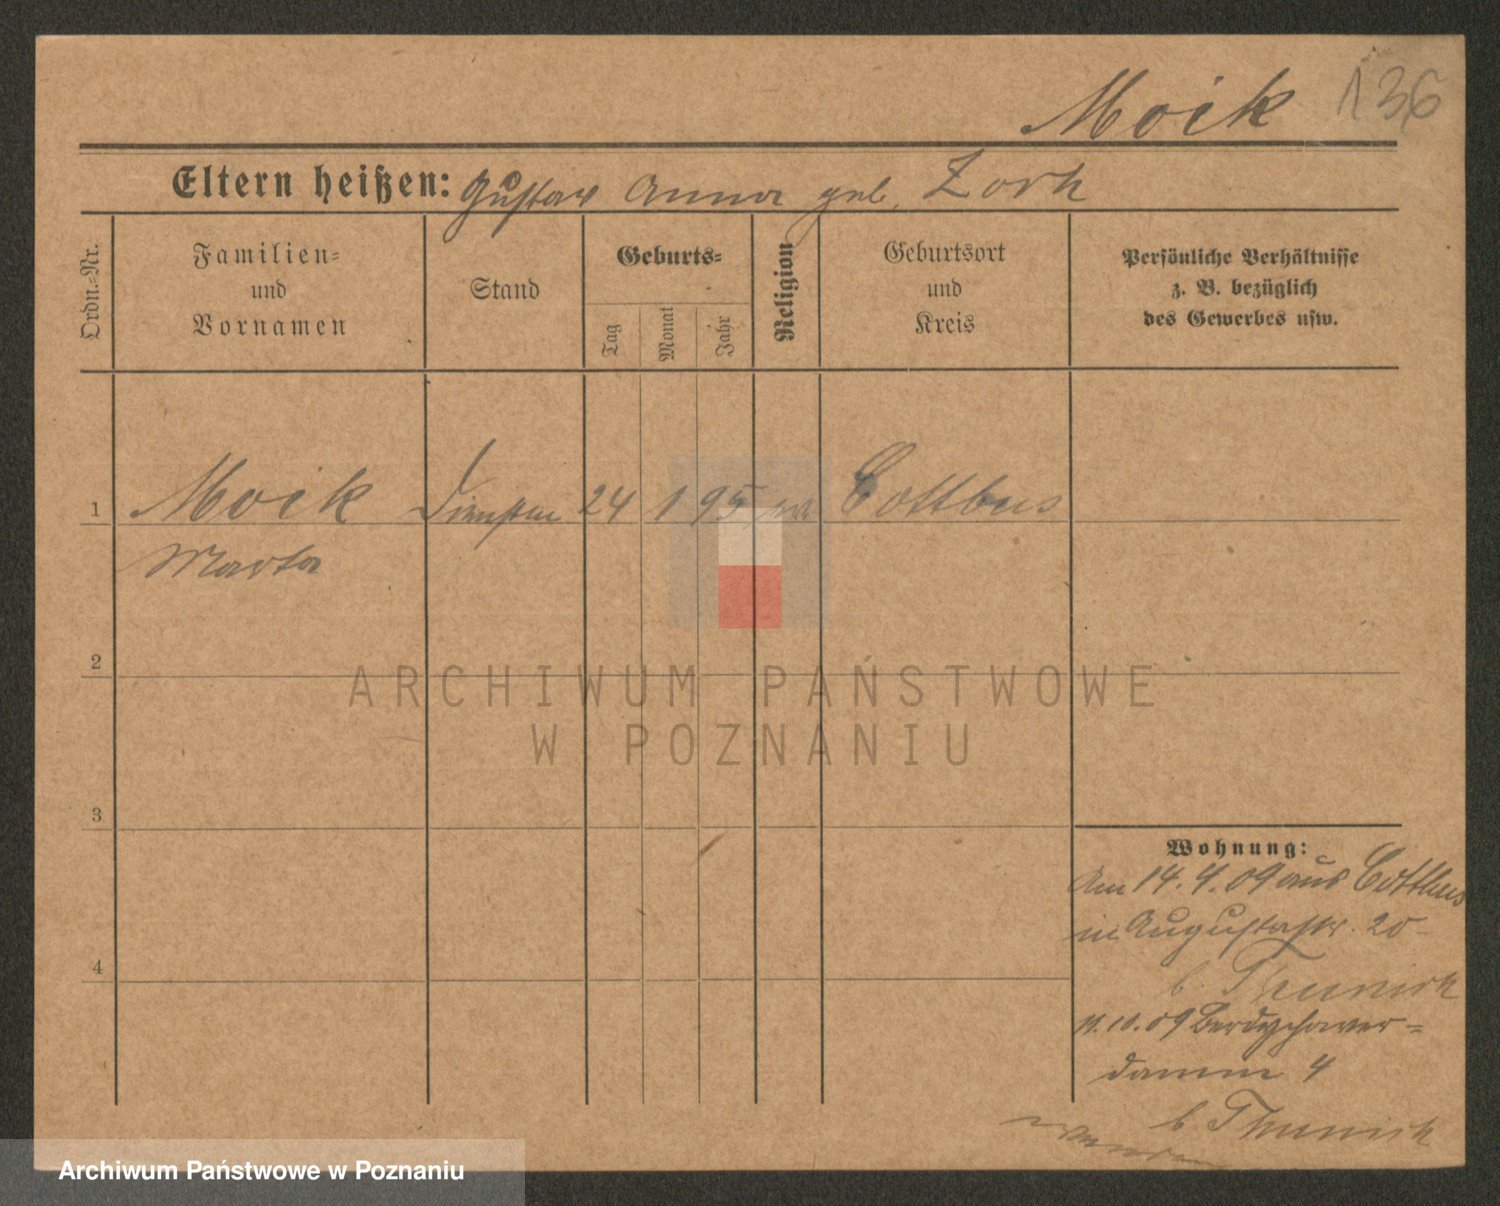 Moik 136
Eltern heißen: Gustav Anna geb. Zorh
Ordn.-Nr.
Familien-
und
Vornamen
Stand
Geburts-
Tag
Monat
Jahr
Religion
Geburtsort
und
Kreis
Persönliche Verhältnisse
z. B. bezüglich
des Gewerbes usw.
1 Moik 24 1 95 Cottbus
Marta
2
3
4
Wohnung:
Am 14.4.09 aus Cottbus
in Augustastr. 20
b. Thunich
11.10.09 Berdychower-
damm 4
b. Thunich
ARCHIWUM PAŃSTWOWE
W POZNANIU
Archiwum Państwowe w Poznaniu